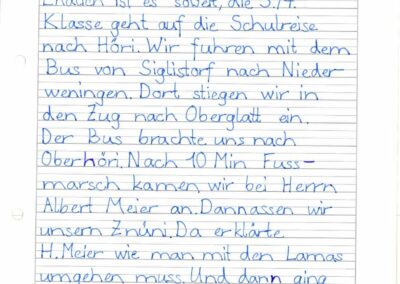 Endlich ist es soweit, die 3./4.
Klasse geht auf die Schulreise
nach Höri. Wir fuhren mit dem
Bus von Siglistorf nach Nieder-
weningen. Dort stiegen wir in
den Zug nach Oberglatt ein.
Der Bus brachte uns nach
Oberhöri. Nach 10 Min Fuss-
marsch kamen wir bei Herrn
Albert Meier an. Dannassen wir
unsern Znüni. Da erklärte
H. Meier wie man mit den Lamas
umgehen muss. Und dann ging